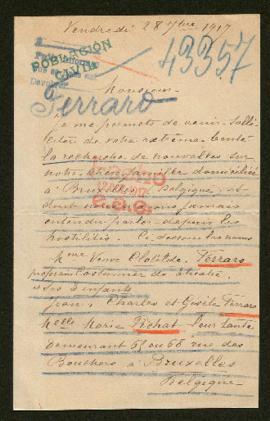 Vendredi 28 7bre 1917
43357
POBLACIÓN
CIVIL
Ferraro
Monsieur
Je me permets de venir solli-
citer de votre extrême bonté
la recherche de nouvelles sur
notre chère famille domiciliée
à Bruxelles Belgique, et
dont nous n'avons jamais
entendu parler depuis les
hostilités. Ci dessous les noms
Mme Veuve Clotilde Ferraro
profession Costumier de théâtre
et ses enfants
Jean, Charles et Gisèle Ferraro
Melle Maria Rehat leur tante
demeurant 51 ou 53 rue des
Bouchers à Bruxelles
Belgique